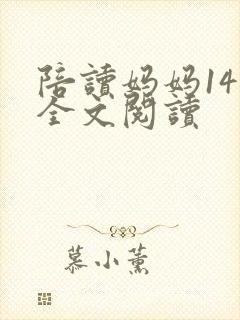 陪讀媽媽14
全文閱讀
慕小薰